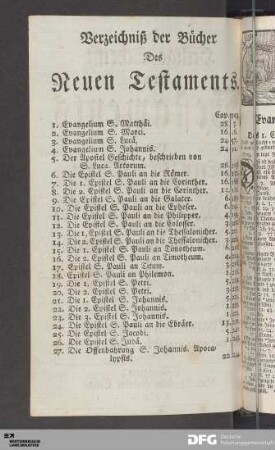 Verzeichniß der Bücher
Des
Neuen Testaments.
Cap.
1. Evangelium S. Matthäi. 28.
2. Evangelium S. Marci. 16.
3. Evangelium S. Lucä. 24.
4. Evangelium S. Johannis.
5. Der Apostel Geschichte, beschrieben von
S. Luca. Actorum. 28.
6. Die Epistel S. Pauli an die Römer. 16.
7. Die 1. Epistel S. Pauli an die Corinther. 16.
8. Die 2. Epistel S. Pauli an die Corinther.
9. Die Epistel S. Pauli an die Galater.
10. Die Epistel S. Pauli an die Epheser.
11. Die Epistel S. Pauli an die Philipper.
12. Die Epistel S. Pauli an die Colosser.
13. Die 1. Epistel S. Pauli an die Thessalonicher.
14. Die 2. Epistel S. Pauli an die Thessalonicher.
15. Die 1. Epistel S. Pauli an Timotheum.
16. Die 2. Epistel S. Pauli an Timotheum.
17. Epistel S. Pauli an Titum.
18. Epistel S. Pauli an Philemon.
19. Die 1. Epistel S. Petri.
20. Die 2. Epistel S. Petri.
21. Die 1. Epistel S. Johannis.
22. Die 2. Epistel S. Johannis.
23. Die 3. Epistel S. Johannis.
24. Die Epistel S. Pauli an die Ebräer.
25. Die Epistel S. Jacobi.
26. Die Epistel S. Judä.
27. Die Offenbahrung S. Johannis. Apoca-
lypsis. 22.
DFG
Deutsche
Forschungsgemeinschaft